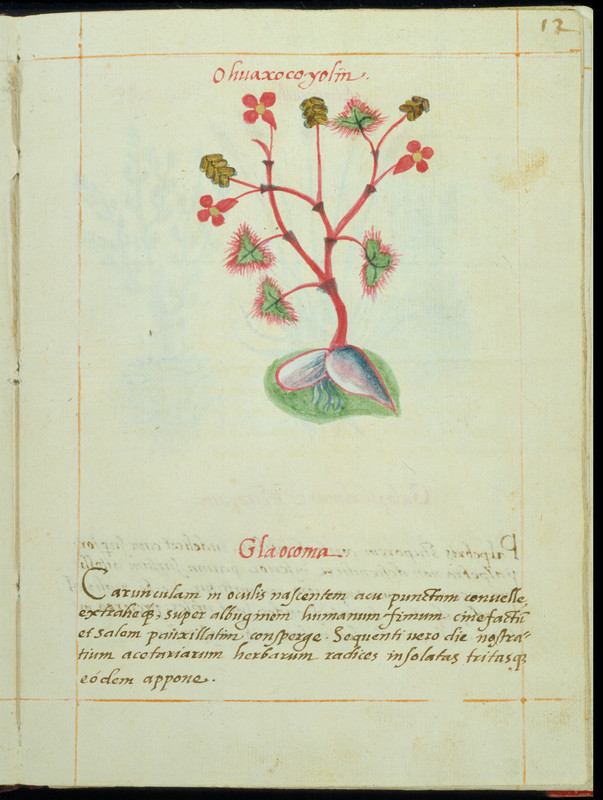 12
Ohuaxocoyolin.
Glaocoma.
Carunculam in oculis nascentem acu punctam convelle,
extraheq;, super albuginem humanum fimum cinefactũ
et salem pauxillatim consperge. Sequenti vero die nostra-
tium acetariarum herbarum radices insolatas tritasq;
eódem appone.